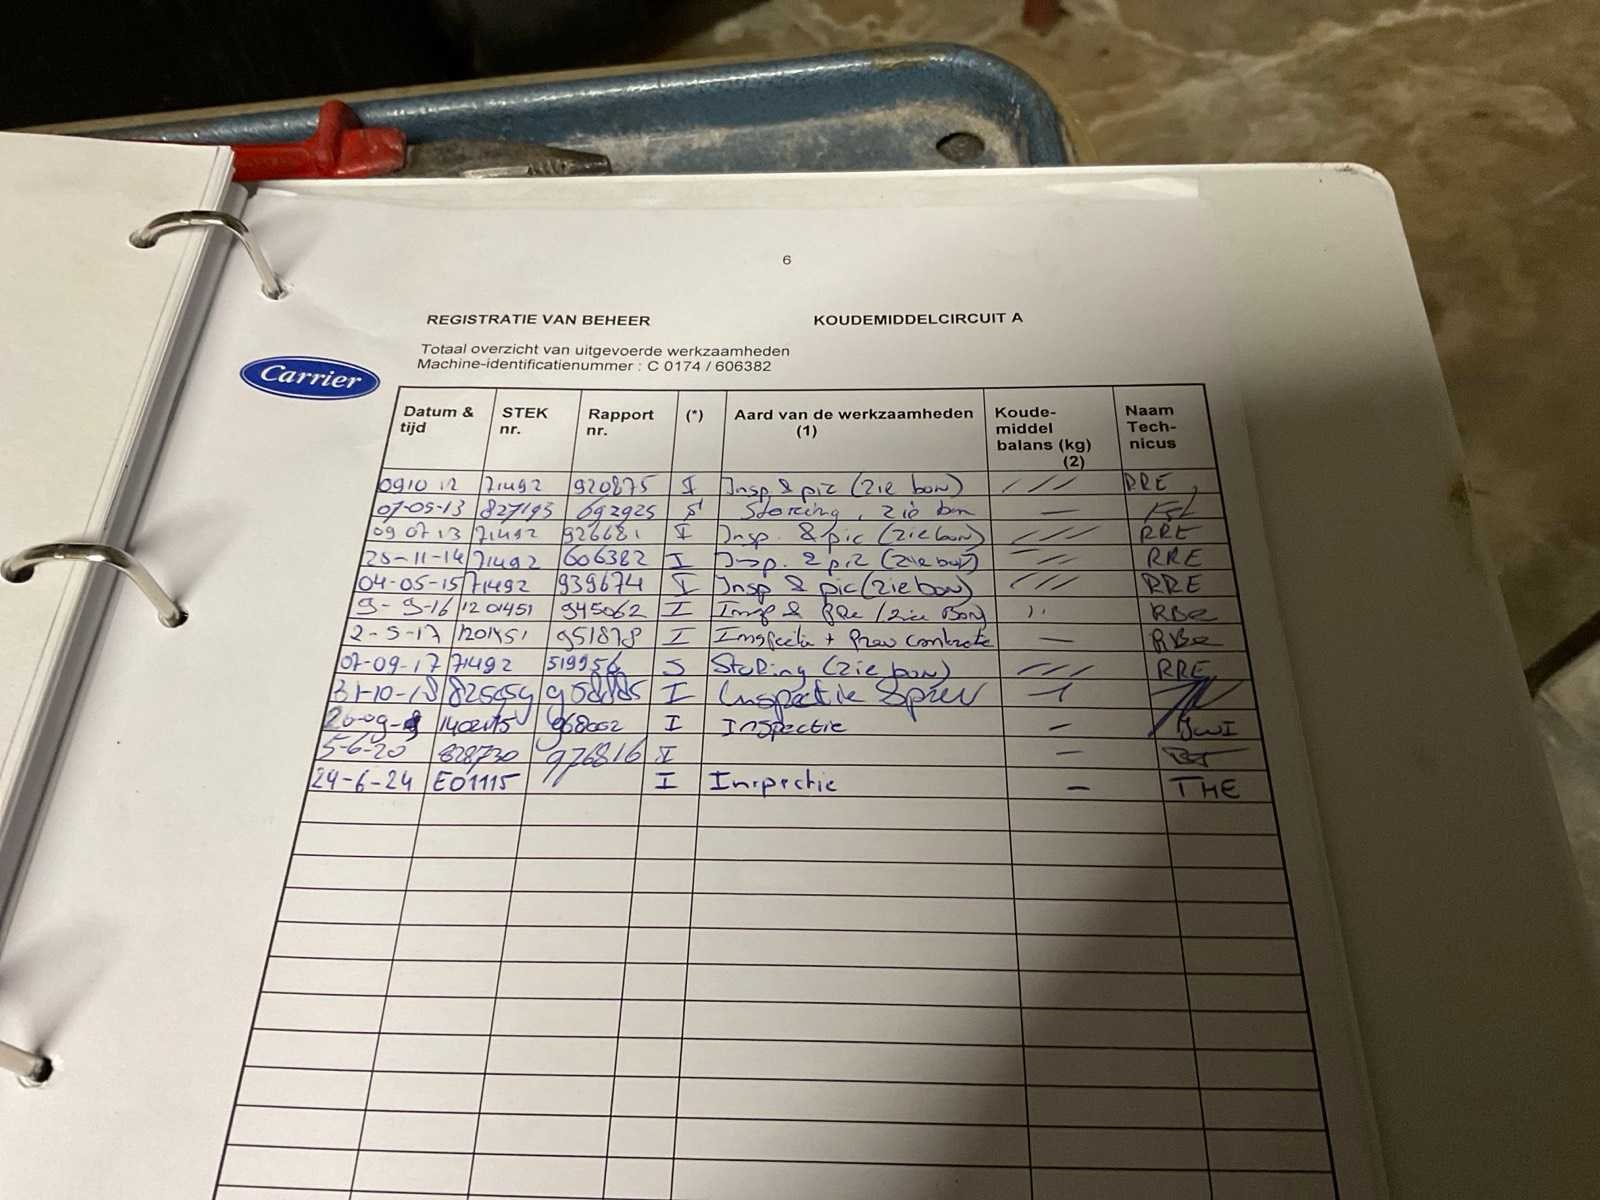 6
REGISTRATIE VAN BEHEER KOUDEMIDDELCIRCUIT A
Totaal overzicht van uitgevoerde werkzaamheden
Machine-identificatienummer : C 0174 / 606382
Carrier
Datum & tijd STEK nr. Rapport nr. (*) Aard van de werkzaamheden (1) Koude-middel balans (kg) (2) Naam Tech-nicus
0910 12 71492 920875 I Insp & pic (zie bon) /// RRE
07-05-13 827193 692925 S Storing, zie bon —
09 07 13 71492 926681 I Insp. & pic (zie bon) /// RRE
71492 606382 I Insp. & pic (zie bon) RRE
04-05-15 71492 939674 I Insp & pic (zie bon) /// RRE
9-9-16 1201451 945062 I Insp & (zie Bon) RBe
2-5-17 1201451 951878 I Inspectie + Prev controle — RBe
07-09-17 71492 519956 S StoRing (zie bon) /// RRE
31-10-18 I Inspectie & prev
I Inspectie – JWI
5-6-20 828730 976816 I –
24-6-24 E01115 I Inspectie – THE